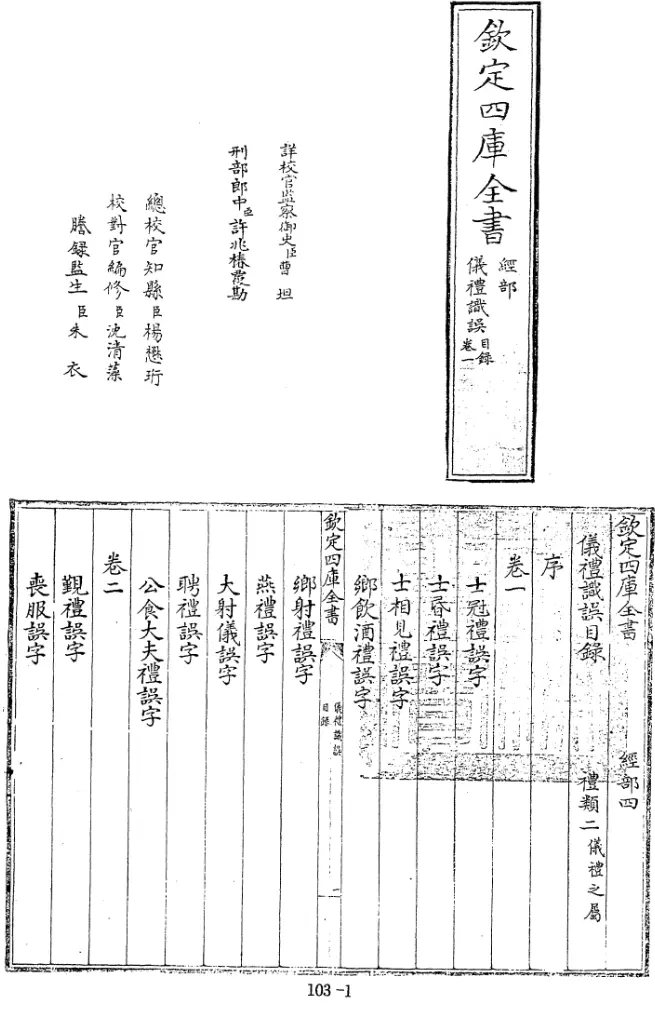 欽定四庫全書
經部
儀禮識誤
目錄
卷一
詳校官監察御史臣曹坦
刑部郎中臣許兆椿覆勘
總校官知縣臣楊懋珩
校對官編修臣沈清藻
謄錄監生臣朱衣
欽定四庫全書 經部四
儀禮識誤目錄 禮類二儀禮之屬
序
卷一
士冠禮誤字
士昏禮誤字
士相見禮誤字
鄉飲酒禮誤字
欽定四庫全書
儀禮識誤
目錄
鄉射禮誤字
燕禮誤字
大射儀誤字
聘禮誤字
公食大夫禮誤字
卷二
覲禮誤字
喪服誤字
103-1